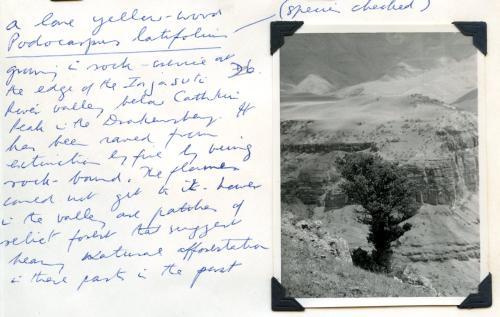 a lone yellow-wood (species checked)
Podocarpus latifolius
growing in rock-crevice at
the edge of the Injasuti Db.
River valley below Cathkin
Peak in the Drakensberg. It
has been saved from
extinction by fire by being
rock-bound. The flames
could not get to it. Lower
in the valley are patches of
relict forest that suggest
heavy natural afforestation
in these parts in the past